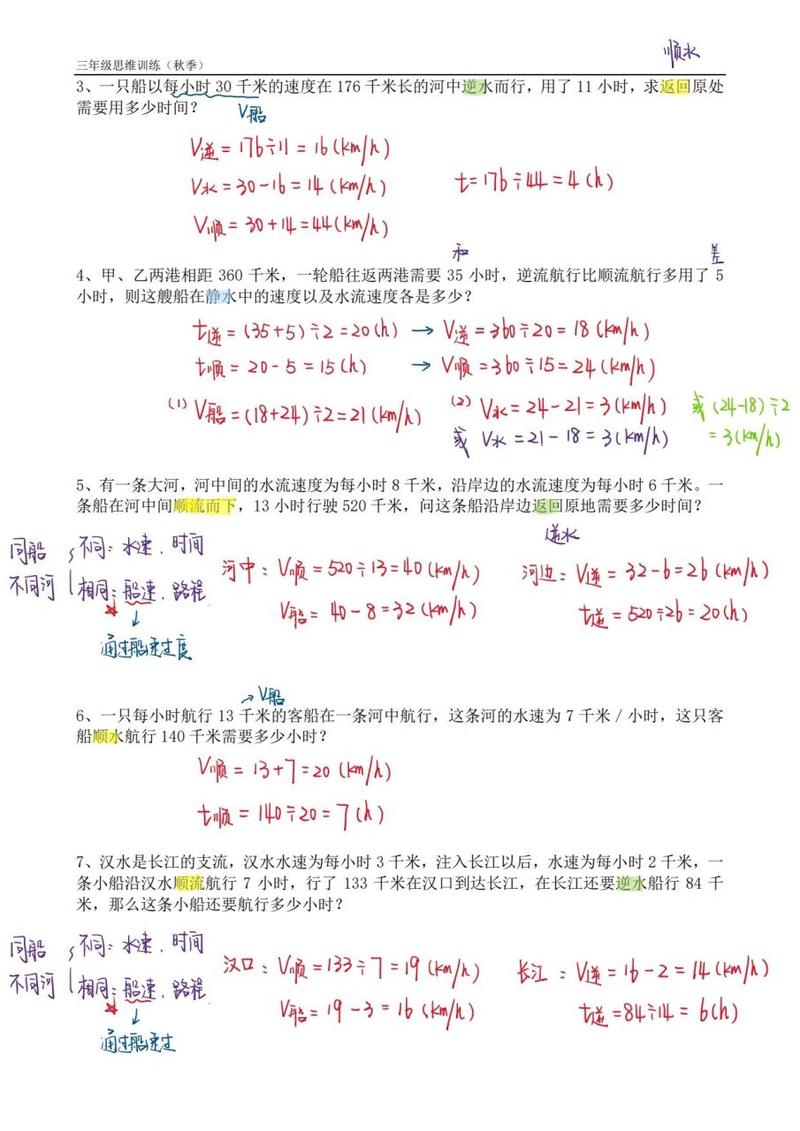 顺水
三年级思维训练（秋季）
3、一只船以每小时 30 千米的速度在 176 千米长的河中逆水而行，用了 11 小时，求返回原处
需要用多少时间？
V船
V逆 = 176÷11 = 16 (km/h)
V水 = 30-16 = 14 (km/h)
t = 176÷44 = 4 (h)
V顺 = 30+14 = 44 (km/h)
和
差
4、甲、乙两港相距 360 千米，一轮船往返两港需要 35 小时，逆流航行比顺流航行多用了 5
小时，则这艘船在静水中的速度以及水流速度各是多少？
t逆 = (35+5)÷2 = 20(h) → V逆 = 360÷20 = 18 (km/h)
t顺 = 20-5 = 15 (h) → V顺 = 360÷15 = 24 (km/h)
(1) V船 = (18+24)÷2 = 21 (km/h) (2) V水 = 24-21 = 3 (km/h) 或 (24-18)÷2
或 V水 = 21-18 = 3 (km/h) = 3 (km/h)
5、有一条大河，河中间的水流速度为每小时 8 千米，沿岸边的水流速度为每小时 6 千米。一
条船在河中间顺流而下，13 小时行驶 520 千米，问这条船沿岸边返回原地需要多少时间？
逆水
同船 不同：水速、时间
不同河 相同：船速、路程
通过船速过度
河中：V顺 = 520÷13 = 40 (km/h) 河边：V逆 = 32-6 = 26 (km/h)
V船 = 40-8 = 32 (km/h) t逆 = 520÷26 = 20 (h)
→ V船
6、一只每小时航行 13 千米的客船在一条河中航行，这条河的水速为 7 千米／小时，这只客
船顺水航行 140 千米需要多少小时？
V顺 = 13+7 = 20 (km/h)
t顺 = 140÷20 = 7 (h)
7、汉水是长江的支流，汉水水速为每小时 3 千米，注入长江以后，水速为每小时 2 千米，一
条小船沿汉水顺流航行 7 小时，行了 133 千米在汉口到达长江，在长江还要逆水船行 84 千
米，那么这条小船还要航行多少小时？
同船 不同：水速、时间
不同河 相同：船速、路程
通过船速过
汉口：V顺 = 133÷7 = 19 (km/h) 长江：V逆 = 16-2 = 14 (km/h)
V船 = 19-3 = 16 (km/h) t逆 = 84÷14 = 6 (h)